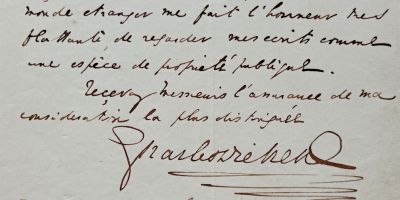 monde etranger me fait l'honneur tres
flattante de regarder mes ecrits comme
une espèce de propriété publique.
Recevez Messieurs l'assurance de ma
consideration la plus distinguée
Charles Dickens